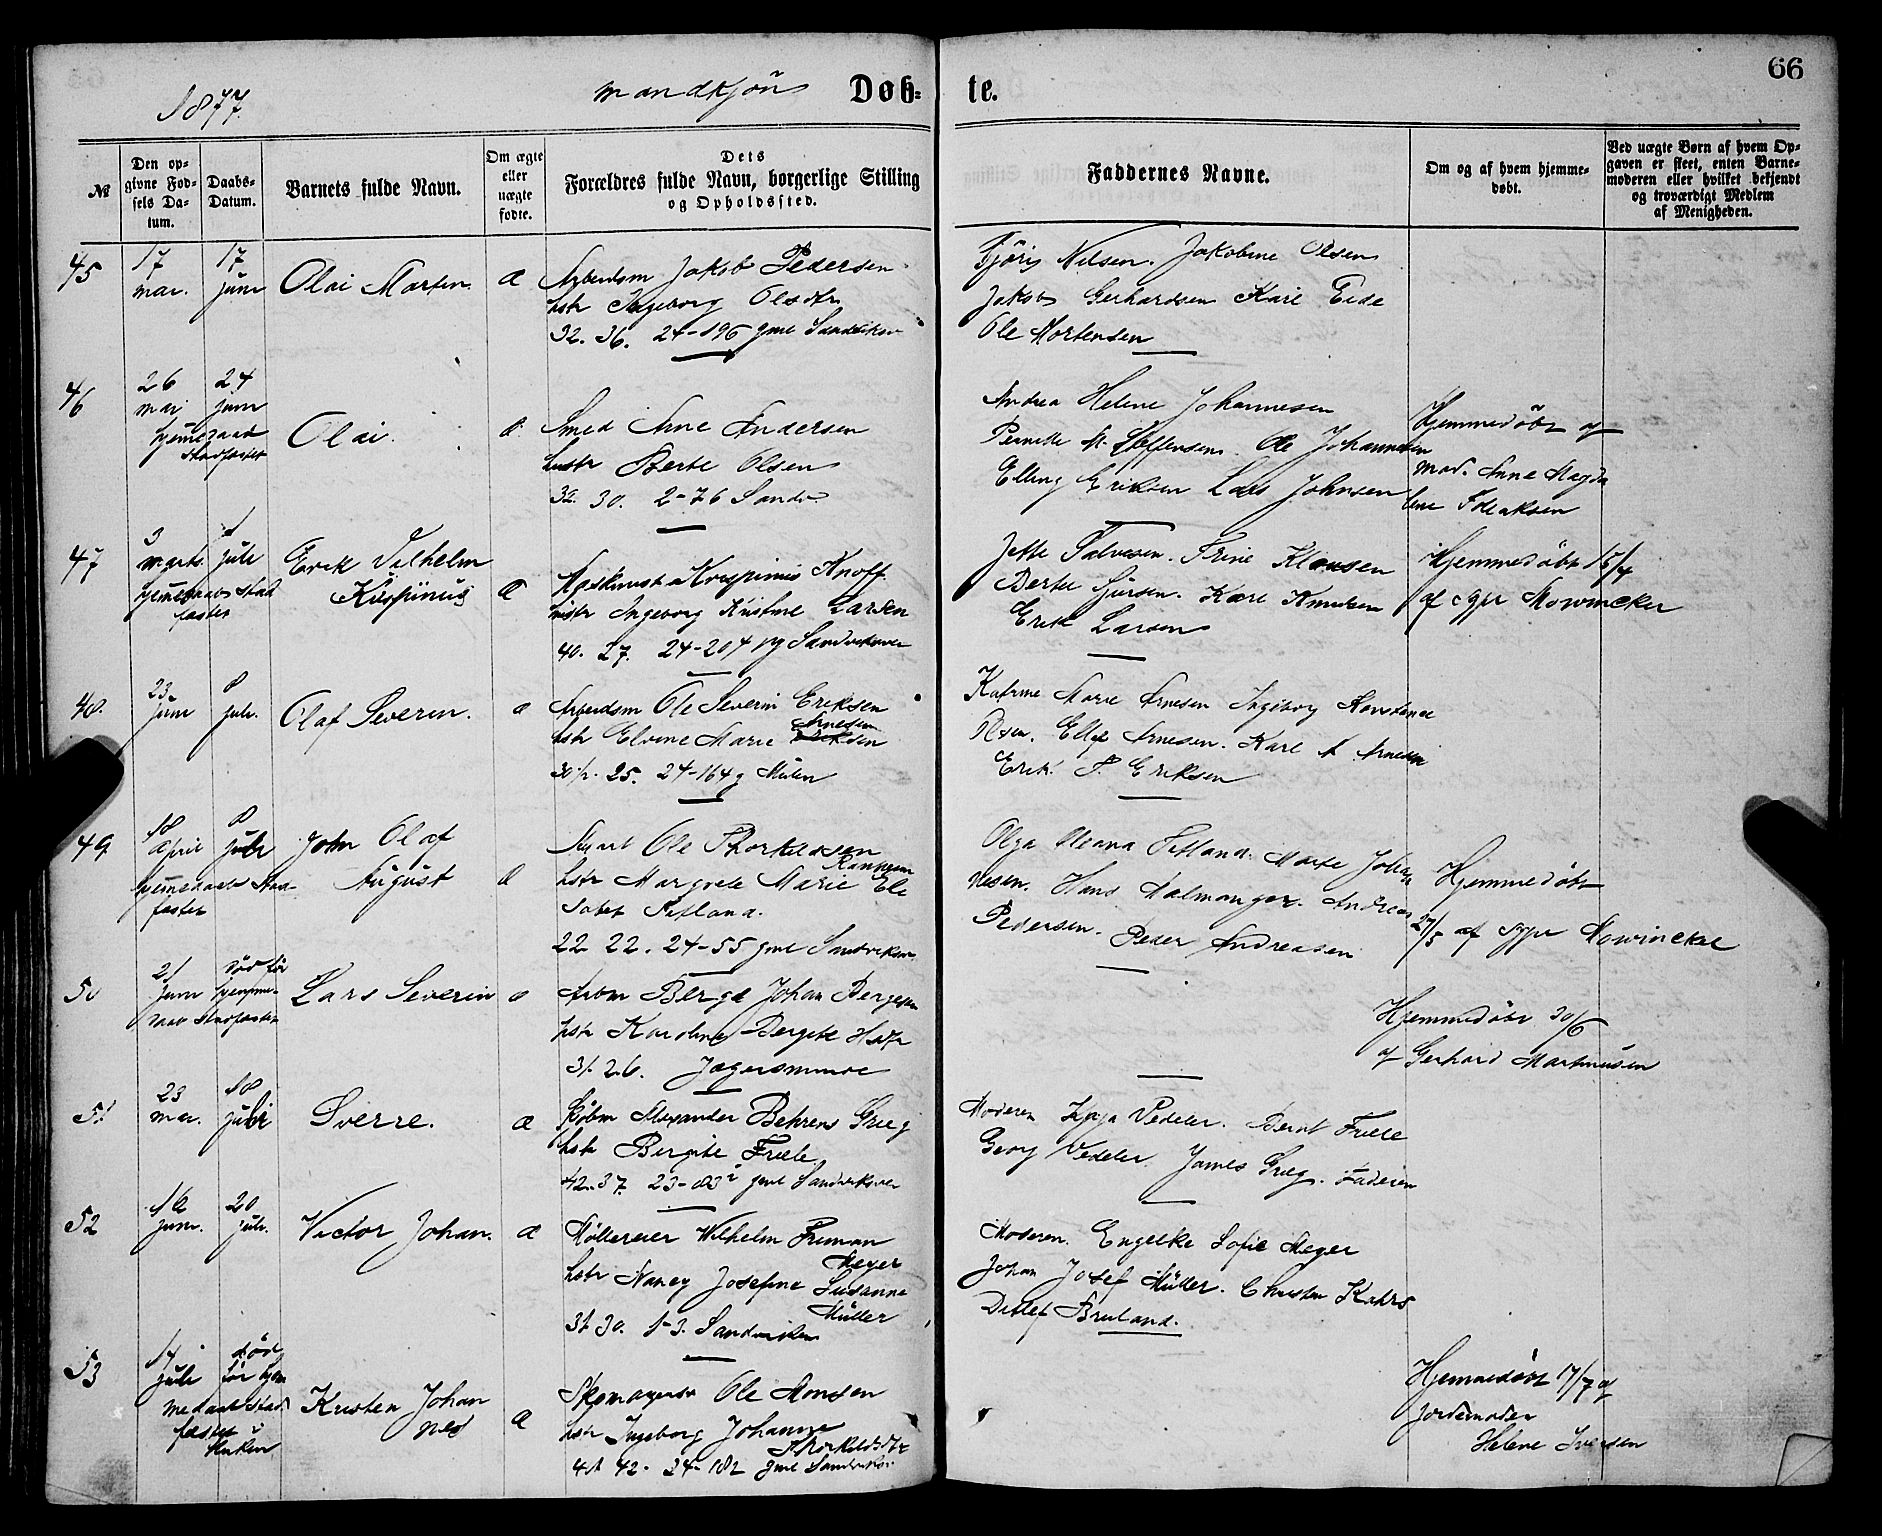 1877.
mandkjön
Døb-
te.
66
№
Den op-
givne Fød-
sels Da-
tum.
Daabs-
Datum.
Barnets fulde Navn.
Om ægte
eller
uægte
fødte.
Dets
Forældres fulde Navn, borgerlige Stilling
og Opholdssted.
Faddernes Navne.
Om og af hvem hjemme-
døbt.
Ved uægte Børn af hvem Op-
gaven er skeet, enten Barne-
moderen eller hvilket bekjendt
og troværdigt Medlem
af Menigheden.
45
17
mai.
17
juni
Olai Martin
a
Arbeidsm Jakob Pedersen
hstr Ingeborg Olsdtr
32. 36. 24-196 gml Sandviksv
Nilsen. Jakobine Olsen
Jakob Gerhardsen Karl Eide
Ole Mortensen
46
26
mai
24
juni
hjemedaab
stadfæstet
Olai.
a
Smed Arne Andersen
hustr Berte Olsen
32. 30. 2-76 Sandv
Andrea Helene Johannesen
Pernille M. Steffensen. Ole Johannesen
Elling Eriksen Lars Johnsen
Hjemmedöbt af
mad. Anne Magda
lene
47
3
marts
1
juli
hjemedaab stad
fæstet
Erik Vilhelm
Krispinus
a
Maskinist Krispinus Knoff
hustr Ingeborg Kristine Larsen
40. 27. 24-204 Sandviksveien
Jette Trine Klausen
Berte Sjursen. Karl Knudsen
Erik Larsen
Hjemmedöbt 15/4
af sgpr Mowinckel
48.
23
juni
8
juli.
Olaf Severin.
a
Arbeidsm Ole Severin Eriksen
Arnesen
hstr Elvine Marie Eriksen
30½. 25. 24-164 g Mulen
Katrine Marie Arnesen Ingeborg Konstance
Olsen. Ellef Arnesen. Karl A Arnesen
Erik S. Eriksen
49
18
april
8
juli
hjemedaab stad-
fæstet
John Olaf
August
a
Ole Thorkildsen
hstr Margrete Marie Eli
sabet Fitland.
22 22. 24-55 gml Sandviksv.
Olga Oleana Fitland. Marte Johan
nesen. Hans Malmanger. Andreas
Pedersen. Peder Andreasen
Hjemmedöbt
27/5 af sgpr Mowinckel
50
21
juni
död för
hjemme-
daab stadfæstet
Lars Severin
a
Arbm Berge Johan Bergesen
hstr Karoline Bergite Hsdtr
31 26. Jægersminde
Hjemmedöbt 30/6
af Gerhard Martinusen
51
23
mai.
18
juli
Sverre.
a
Kjøbm Alexander Behrens Grieg
hstr Bergite Friele
42. 37. 23-83 gml Sandviksvei
Moderen Kaja Vedeler. Bernt Friele
Georg Vedeler. James Grieg. Faderen
52
16
juni.
20
juli.
Victor Johan.
a
Möllereier Wilhelm Friman
Meyer
hstr Nancy Josefine Susanne
Müller
31 30. 1-3. Sandviken
Moderen. Engelke Sofie Meyer
Johan Josef Müller. Christen Kahrs
Ditlef Bruland.
53
14
juli
död
för hjem
medaab stad
fæstet i
kirken
Kristen Johan
nes
a
Skomagersv Ole Monsen
hstr Ingeborg Johanne
Thorkildsdtr
41 42. 24-182 gml Sandviksv.
Hjemmedöbt 17/7 af
Jordemoder
Helene Iversen